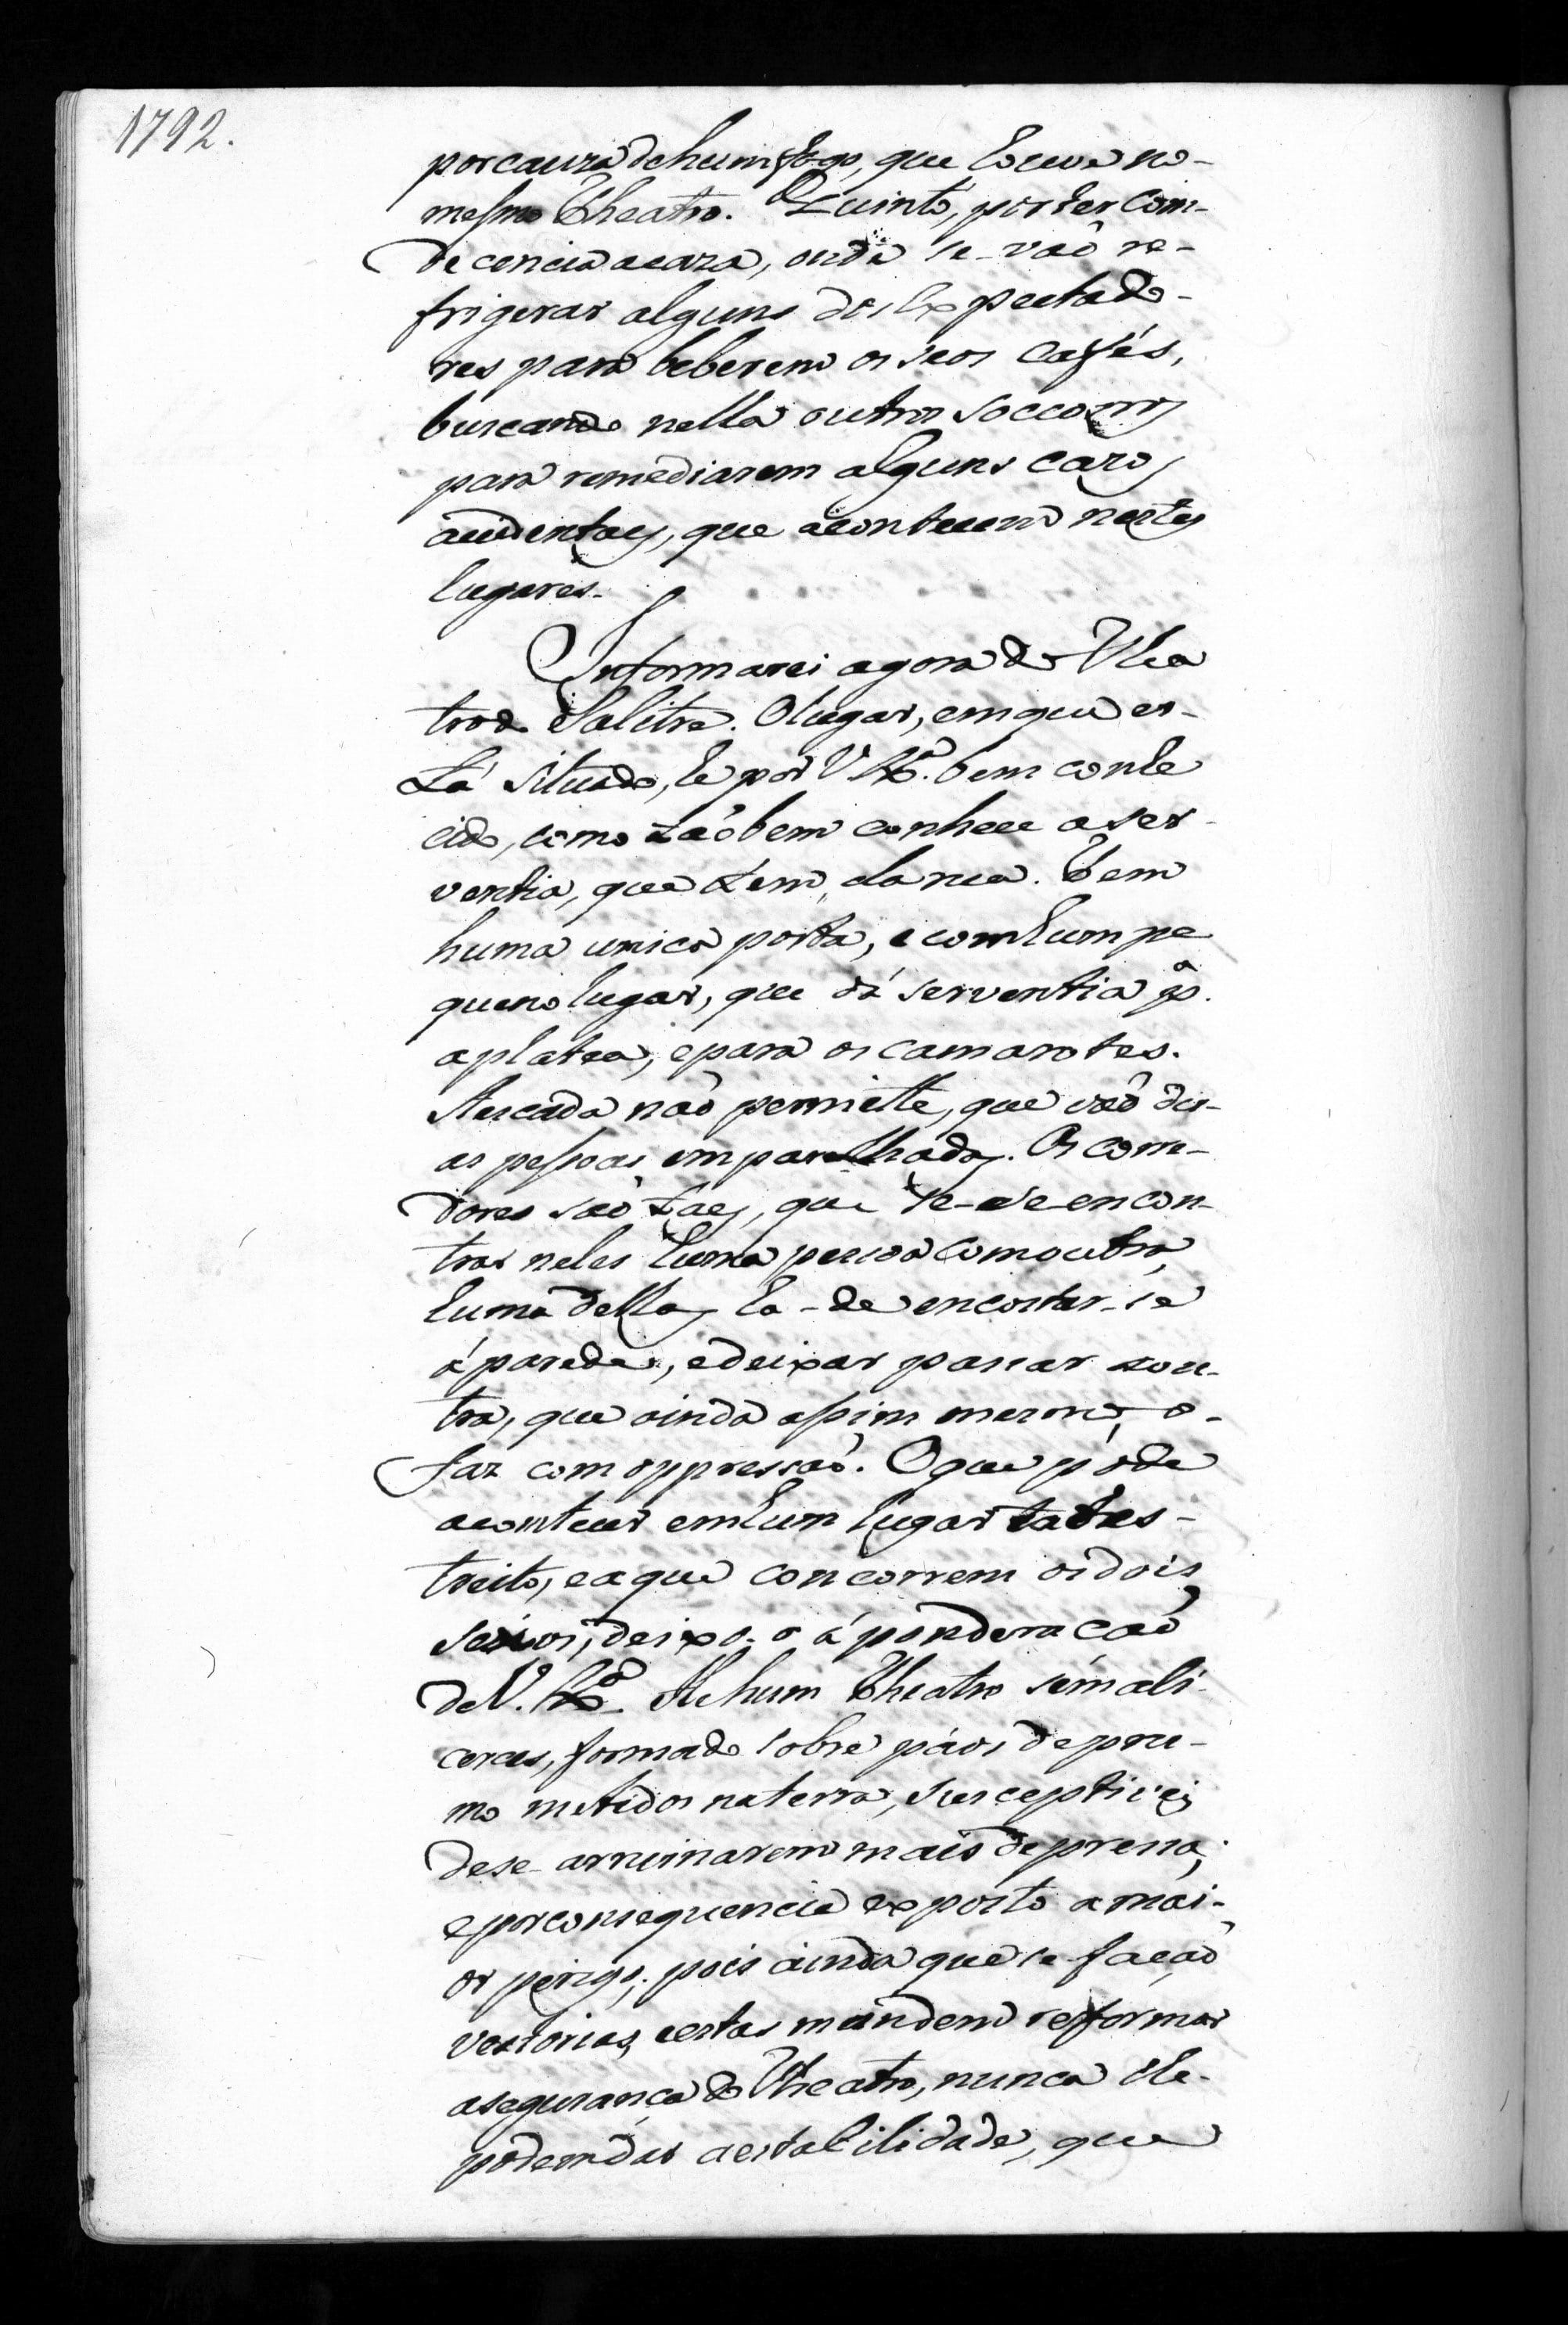 1792.
por cauza de hum fogo, que houve no-
mesmo Theatro. Quinto, por ter com-
decencia a caza, onde se-vaõ re-
frigerar alguns dos Expectado-
res para beberem os seos cafés,
buscando nella outros soccorros
para remediarem alguns cazos
accidentaes, que acontecem nestes
lugares.
Informarei agora do Thea
tro do Salitre. O lugar, em que es-
tá situado, he por V. Exª. bem conhe
cido, como taõbem conhece a ser-
ventia, que tem da rua. Tem
huma unica porta, e com hum pe
queno lugar, que dá serventia pª.
a platea, e para os camarotes.
A escada naõ permitte, que vaõ du-
as pessoas emparelhadas. Os corre-
dores saõ taes, que se-se-encon-
trar neles huma pessoa com outra,
huma dellas ha-de encostar-se
á parede, e deixar passar a ou-
tra, que ainda assim mesmo o-
faz com oppressaõ. O que póde
acontecer em hum lugar taõ es-
treito, e a que concorrem os dois
sexos, deixo-o á ponderaçaõ
de V. Exª. He hum Theatro sem ali-
cerces, formado sobre páos de pru-
mo metidos na terra, susceptiveis
de se-arruinarem mais depressa;
e por consequencia exposto a mai-
or perigo; pois ainda que se-façaõ
vestorias, e estas mandem reformar
a segurança do Theatro, nunca lhe-
podem dar a estabilidade, que